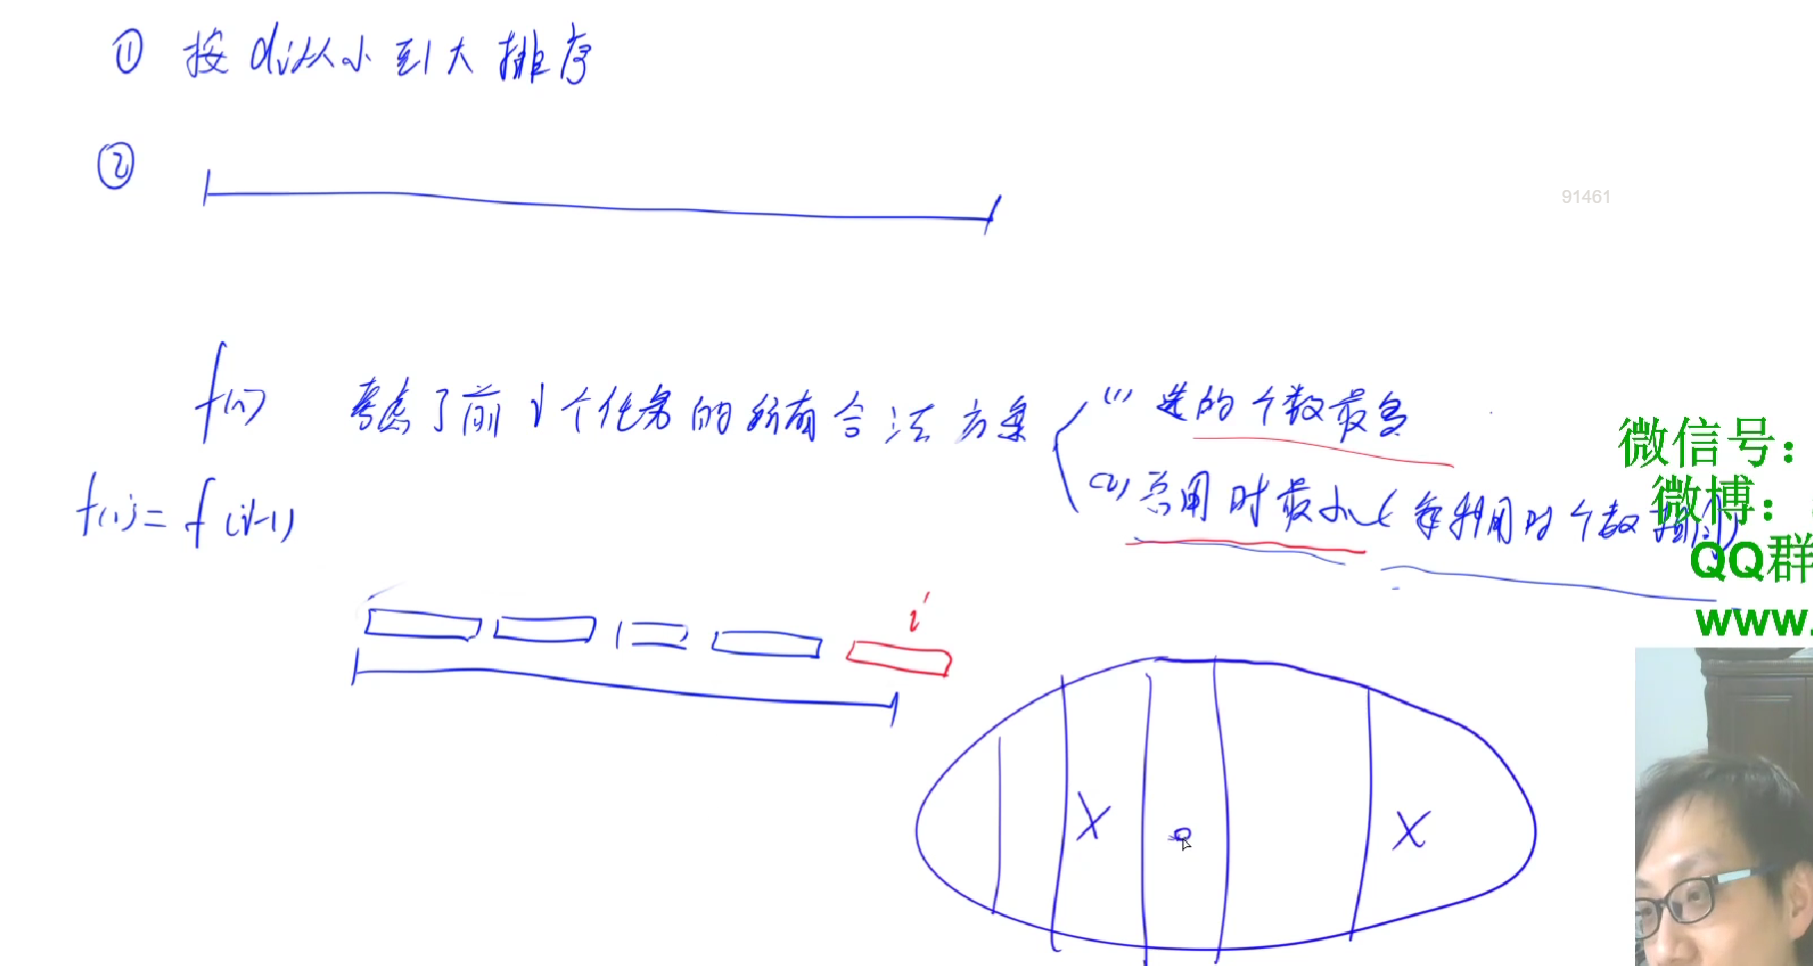 ① 按 di 从小到大排序
②
91461
f(i) 考虑了前 i 个任务的所有合法方案
(1) 选的个数最多
(2) 总用时最小(在利用时个数
f(i) = f(i-1)
i
X
X
微信号:
微博:
QQ群
www.